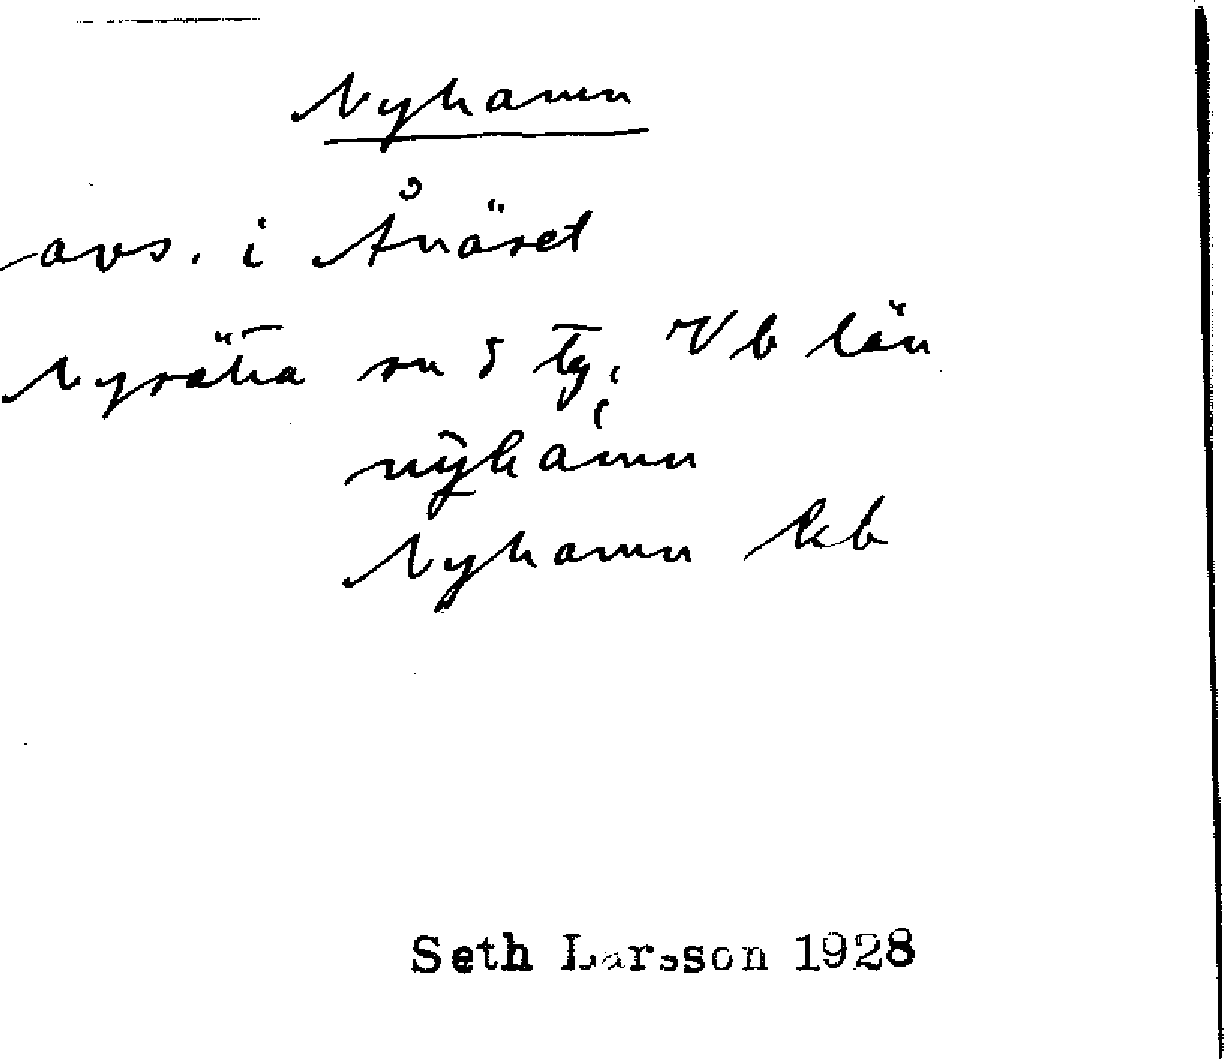 Nyhamn
avs. i Ånäset
Nysätra sn S tg. Vb län
nyhamn
Nyhamn kb
Seth Larsson 1928